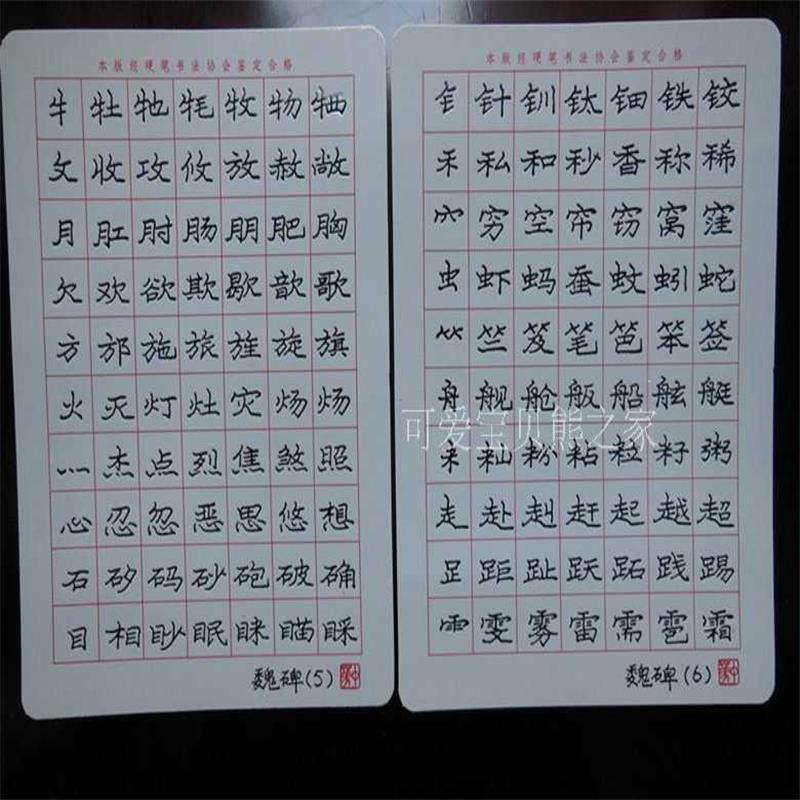 本版经硬笔书法协会鉴定合格
牜 牡 牠 牦 牧 物 牺
攵 收 攻 攸 放 赦 敞
月 肛 肘 肠 朋 肥 胸
欠 欢 欲 欺 歇 歆 歌
方 邡 施 旅 旌 旋 旗
火 灭 灯 灶 灾 炀 炀
灬 杰 点 烈 焦 煞 照
心 忍 忽 恶 思 悠 想
石 矽 码 砂 砲 破 确
目 相 眇 眠 眯 瞄 睬
魏碑(5)
本版经硬笔书法协会鉴定合格
钅 针 钏 钛 钿 铁 铰
禾 私 和 秒 香 称 稀
穴 穷 空 帘 窃 窝 窪
虫 虾 蚂 蚕 蚊 蚓 蛇
⺮ 竺 笈 笔 笆 笨 签
舟 舰 舱 舨 船 舷 艇
耒 籼 粉 粘 粒 籽 粥
走 赴 赳 赶 起 越 超
𧾷 距 趾 跃 跖 践 踢
⻗ 雯 雾 雷 需 雹 霜
魏碑(6)
可爱宝贝熊之家